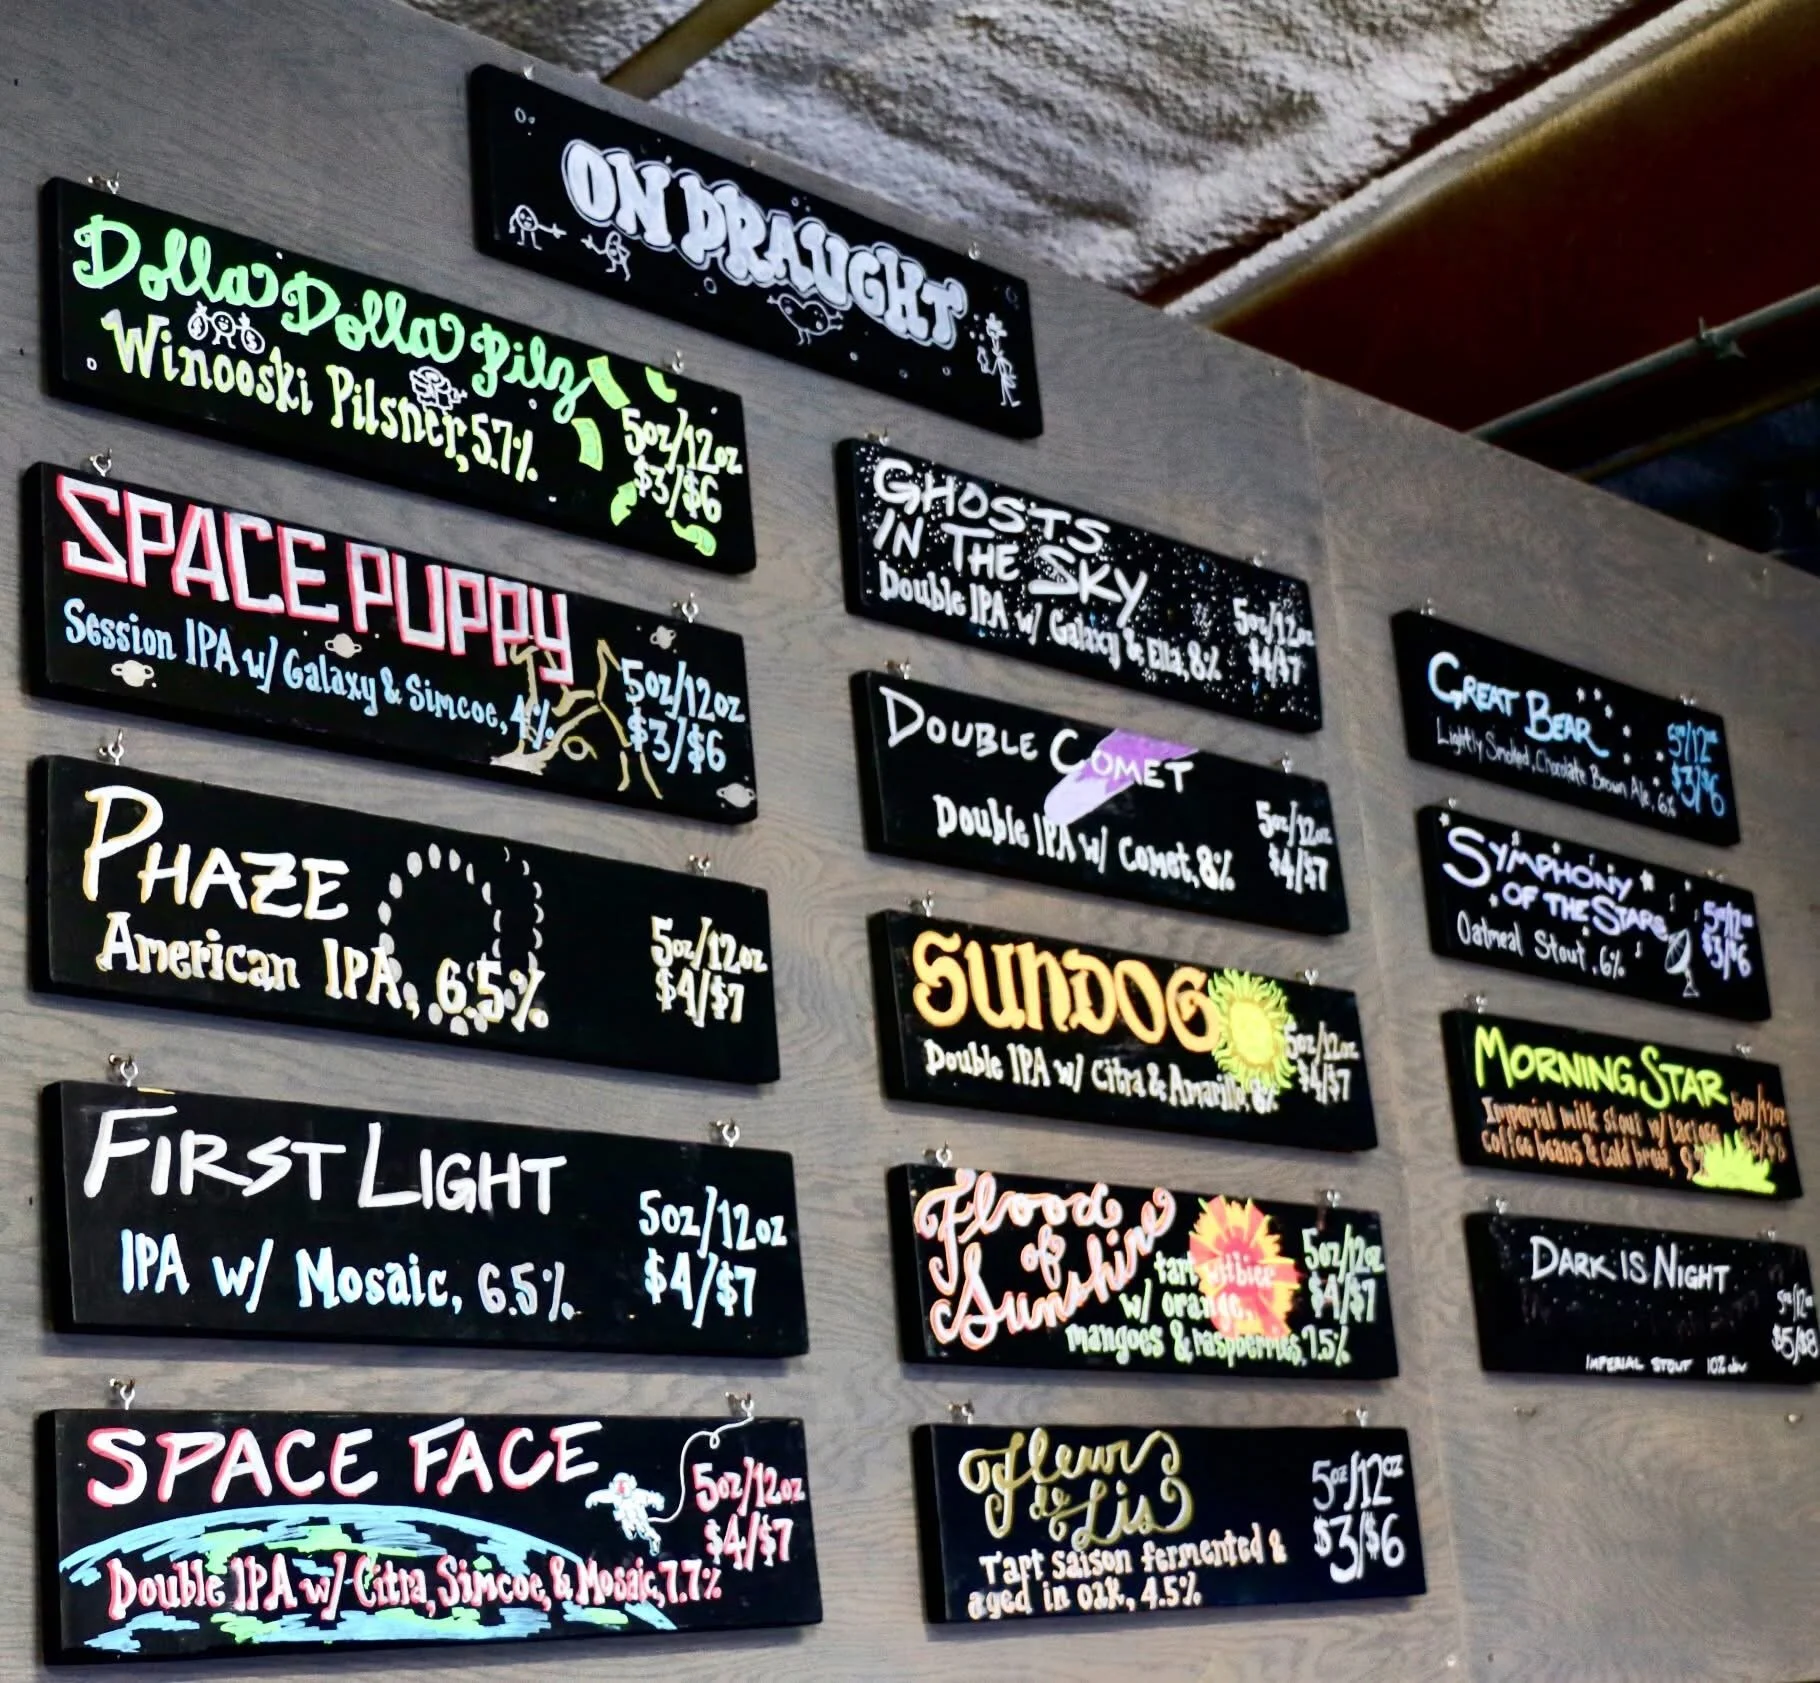 ON DRAUGHT
Dolla Dolla Pilz
Winooski Pilsner, 5.7%
5oz/12oz
$3/$6
SPACE PUPPY
Session IPA w/ Galaxy & Simcoe, 4%
5oz/12oz
$3/$6
PHAZE
American IPA, 6.5%
5oz/12oz
$4/$7
FIRST LIGHT
IPA w/ Mosaic, 6.5%
5oz/12oz
$4/$7
SPACE FACE
Double IPA w/ Citra, Simcoe, & Mosaic, 7.7%
5oz/12oz
$4/$7
GHOSTS
IN THE SKY
Double IPA w/ Galaxy & Ella, 8%
5oz/12oz
$4/$7
DOUBLE COMET
Double IPA w/ Comet, 8%
5oz/12oz
$4/$7
SUNDOG
Double IPA w/ Citra & Amarillo, 8%
5oz/12oz
$4/$7
Flood
of
Sunshine
tart witbier
w/ orange,
mangoes & raspberries, 7.5%
5oz/12oz
$4/$7
Fleur
de
Lis
Tart saison fermented &
aged in oak, 4.5%
5oz/12oz
$3/$6
GREAT BEAR
Lightly Smoked, Chocolate Brown Ale, 6%
5oz/12oz
$3/$6
SYMPHONY
OF THE STARS
Oatmeal Stout, 6%
5oz/12oz
$3/$6
MORNING STAR
Imperial milk stout w/ lactose
coffee beans & cold brew,
5oz/12oz
$5/$8
DARK IS NIGHT
IMPERIAL STOUT 10% abv
5oz/12oz
$5/$8